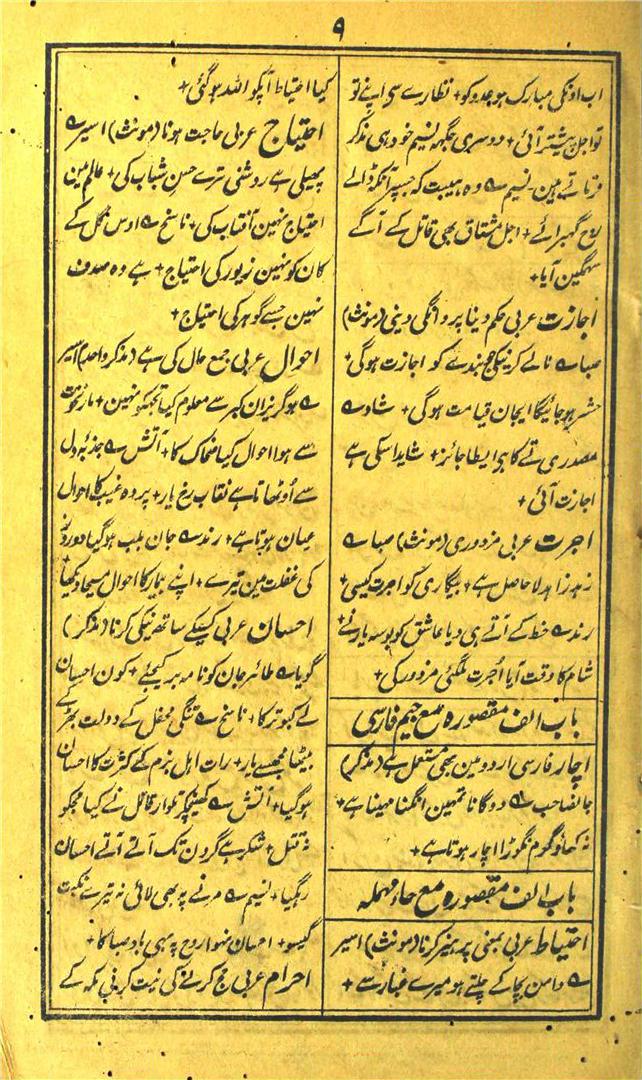 ۹
اب اونکی مبارک ہو عدو کو + نظارے سی اپنے تو
تو اجل بیشتر آئی + دوسری جگہہ نسیم خود ہی مذکر
فرماتے ہین نسیم ے وہ ہیبت کہ جسپر آنکھ ڈالے
روح گھبرائے + اجل مشتاق بھی قاتل کے آگے
سہمگین آیا +
اجازت عربی حکم دینا پروانگی دینی (مونث)
صبا ے نالے کرنیکی جو بندے کو اجازت ہوگی +
حشر ہو جائیگا ایجان قیامت ہوگی + شاد ے
مصدری تے کا ہی ایطا جائز + شاید اسکی ہے
اجازت آئی +
اجرت عربی مزدوری (مونث) صبا ے
زہد زاہد لا حاصل ہے + بیگاری کو اجرت کیسی +
رند ے خط کے آتے ہی دیا عاشق کو بوسہ یار نے +
شام کا وقت آیا اُجرت ملگئی مزدور کی +
باب الف مقصورہ مع جیم فارسی
اچار فارسی اردو مین بھی مستعمل ہے (مذکر)
جانصاحب ے دوگانا تمہین انگنا مہینا ہے +
نہ کھاؤ گرم نگوڑا اچار ہوتا ہے +
باب الف مقصورہ مع حاء مہملہ
احتیاط عربی بمعنی پرہیز کرنا (مونث) اسیر
ے دامن بچا کے چلتے ہو میرے غبار سے +
کیا احتیاط آپکو اللہ ہو گئی +
احتیاج عربی حاجت ہونا (مونث) اسیر ے
پھیلی ہے روشنی ترے حسن شباب کی + عالم مین
احتیاج نہین آفتاب کی + ناسخ ے اوس گل کے
کان کو نہین زیور کی احتیاج + ہے وہ صدف
نہین جسے گوہر کی احتیاج +
احوال عربی جمع حال کی ہے (مذکر واحد) اسیر
ے ہو گریزان کبر سے معلوم کیا تجھکو نہین + مار نخوت
سے ہوا احوال کیا ضحاک کا + آتش ے جذبۂ دل
سے اُوٹھاتا ہے نقاب رخ یار + پردہ غیب کا احوال
عیان ہوتا ہے + رند ے جان بلب ہو گیا دو روز
کی غفلت مین تیرے + اپنے بیمار کا احوال مسیحا دیکھا +
احسان عربی کسیکے ساتھ نیکی کرنا (مذکر)
گویا ے طائر جان کو نامہ بر کیجئے + کون احسان
لے کبوتر کا + ناسخ ے تنگی محفل کے دولت بھڑکے
بیٹھا مجھسے یار + رات اہل بزم کے کثرت کا احسان
ہو گیا + آتش ے کھینچکر تلوار قاتل نے کیا مجکو
نہ قتل + شکر ہے گردن تک آتے آتے احسان
رہگیا + نسیم ے مرنے پہ بھی لائی نہ تیرے نکہت
گیسو + احسان نہوا روح پہ یہی باد صبا کا +
احرام عربی حج کرنے کی نیت کرنی مکہ کے